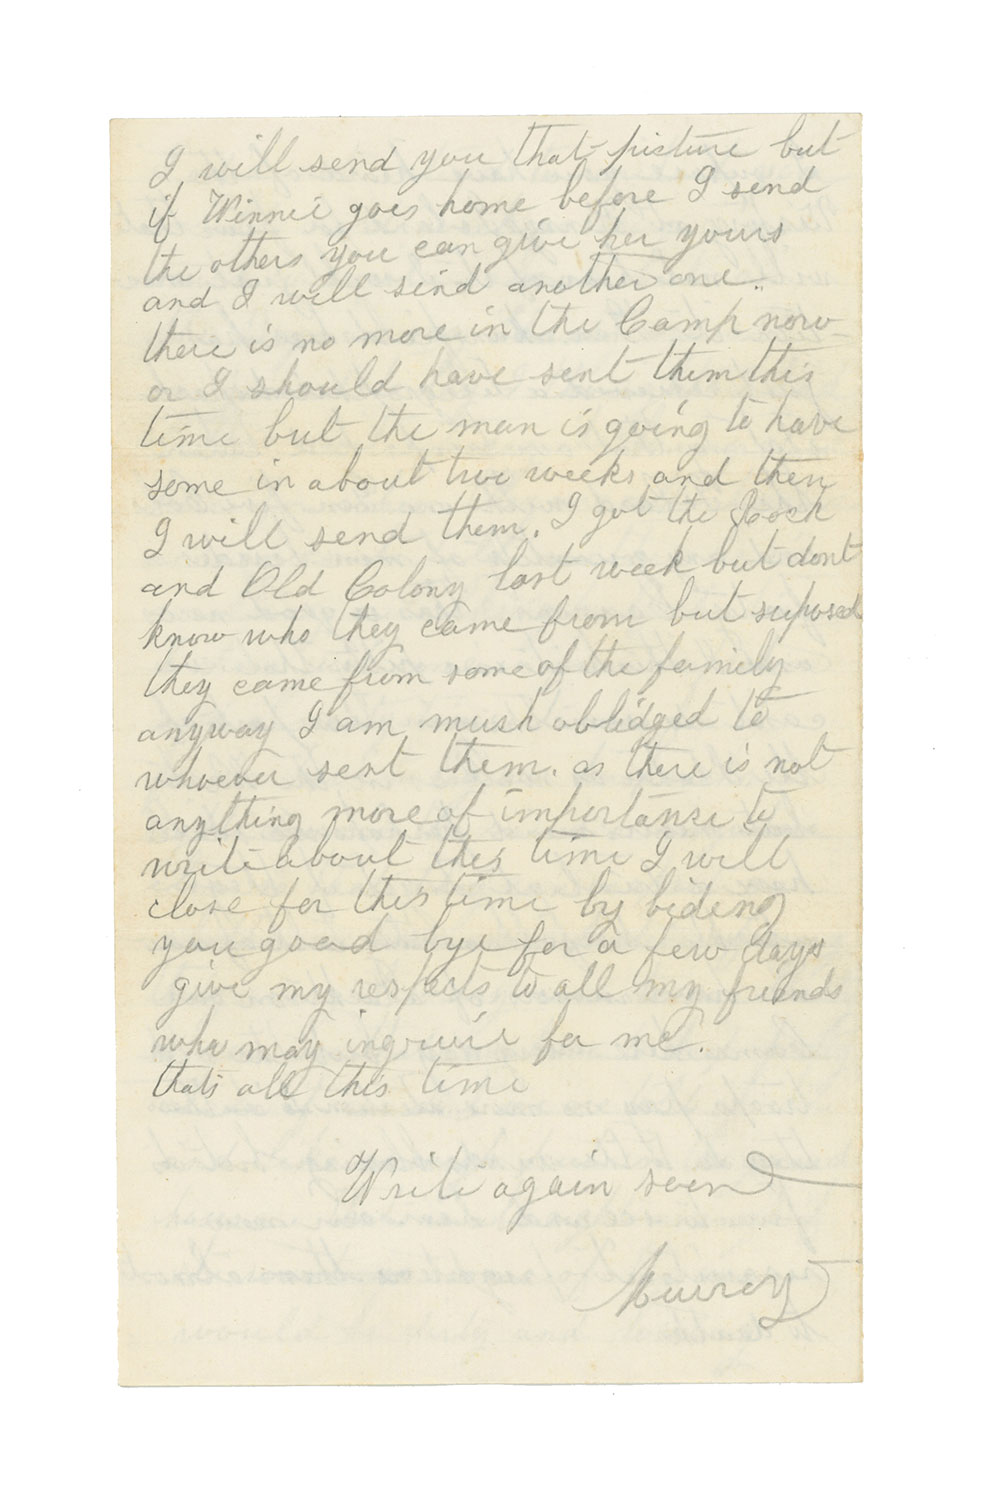 I will send you that picture but
if Winnie goes home before I send
the others you can give her yours
and I will send another one.
there is no more in the Camp now
or I should have sent them this
time but the man is going to have
some in about two weeks and then
I will send them. I got the Book
and Old Colony last week but dont
know who they came from but suposed
they came from some of the family
anyway I am mush oblidged to
whoever sent them. as there is not
anything more of importanse to
write about this time I will
close for this time by biding
you good bye for a few days
give my respects to all my friends
who may inqruire for me.
thats all this time
Write again soon